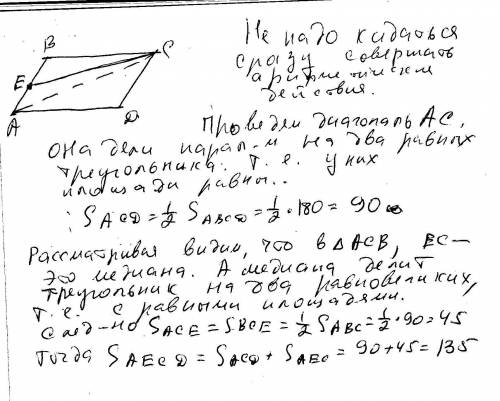 B
C
E
A
D
Не надо кидаться
сразу совершать
арифметические
действия.
Проведём диагональ AC.
Она дели парал-м на два равных
треугольника. т.е. у них
площади равны..
: S ACD = 1/2 S ABCD = 1/2 · 180 = 90
Рассматривая видим, что в Δ ACB, EC –
это медиана. А медиана делит
треугольник на два равновеликих,
т.е. с равными площадями.
След-но S ACE = S BCE = 1/2 S ABC = 1/2 · 90 = 45
Тогда S AECD = S ACD + S AEC = 90 + 45 = 135